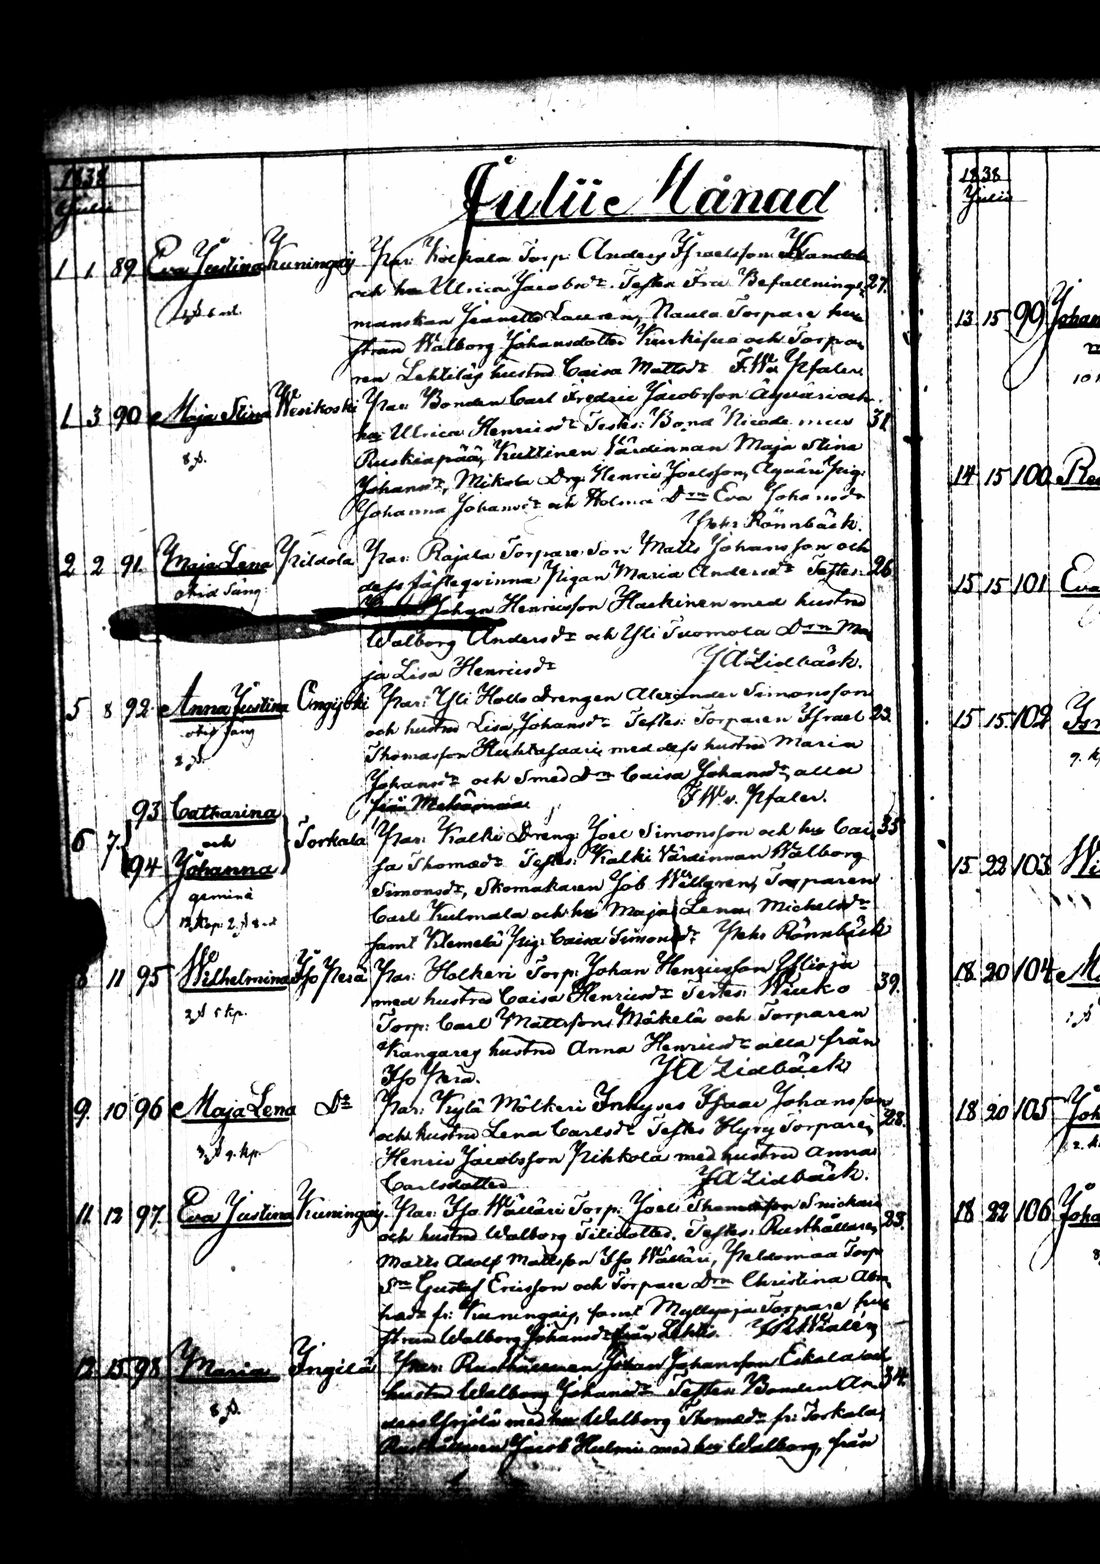 1838
Julii
Julii Månad
1 1 89 Eva Justina Kuningais Par: Kolkala Torp: Anders Israelsson
och hu Ulrica Jacobsdr. Testes Fru Befallnings- 27.
manskan Jeanette Lauren, Naula Torpare hu-
strun Walborg Johansdotter Kuukisuo och Torpa-
ren Lehtiläs hustru Caisa Mattsdr F.W. v. Pfaler.
1 3 90 Maja Stina Wesikoski Par: Bonden Carl Fredric Jacobsson Äyväri och 31
8 β. hu: Ulrica Henricsdr Testes: Bond Nicodemus
Ruskiapää, Kuttinen Värdinnan Maja Stina
Johansdr, Mikola Drg: Henric Joelsson, Äyväri Pig:
Johanna Johansdr och Holma Drn Eva Johansdr
Petr Rönnbäck.
2 2 91. Maja Lena Pildola Par: Rajala Torpare Son Matts Johansson och
dess fästeqvinna Pigan Maria Andersdr Testes: 26
Johan Henricsson Haskinen med hustru
Walborg Andersdr och Yli Tuomola Drn Ma-
ja Lisa Henricsdr JALidbäck.
5 8 92. Anna Justina Par: Yli Hollo Drengen Alexander Simonsson
och hustru Lisa Johansdr Testes: Torparen Israel 23.
Thomasson Huhtasaari med dess hustru Maria
Johansdr och Smed Drn Caisa Johansdr, alla
från F.W. v. Pfaler.
93 Catharina
6 7 och Torkala Par: Kalki Dreng Joel Simonsson och hu Cai- 35
94 Johanna sa Thomædr Testes: Kalki Värdinnan Walborg
gemina Simonsdr, Skomakaren Job Wällgren, Torparen
Carl Kulmala och hu Maja Lena Michelsdr
samt Klemelä Pig: Caisa Simonsdr Petr Rönnbäck
8 11 95 Wilhelmina Iso Perä Par: Holkeri Torp: Johan Henricsson Ylioja
med hustru Caisa Henricsdr Testes: 39.
Torp: Carl Mattsson Mäkelä och Torparen
Kangares hustru Anna Henricsdr alla från
Iso Perä. JALidbäck
9. 10 96 Maja Lena Do Par: Kylä Mölkeri Inhyses Isaac Johansson
och hustru Lena Carlsdr Testes Hyry Torparen 28.
Henric Jacobsson Pikkola med hustru Anna
Carlsdotter JALidbäck.
11 12 97. Eva Justina Kuningais. Par: Iso Wäläri Torp: Joel
och hustru Walborg Testes: Rusthållaren 23.
Matts Adolf Mattsson Iso Wäläri, Peldomaa Torp
Sn Gustaf Ericsson och Torpare Drn Christina Abra-
hadr fr: Kuningais, samt Myllyoja Torpare hu-
strun Walborg Johansdr från
12 15 98 Maria Ingilä Par: Rusthållaren Johan Johansson Eskola och 34.
8 β. hustru Walborg Johansdr Testes Bonden An-
ders Yrjölä med hu Walborg Thomædr fr: Torkala,
Rusthållaren Jacob Hulmi med hu Walborg, från
1838
Julii
13 15 99
14 15 100
15 15 101 Eva
15 15 102
15 22 103
18 20 104
18 20 105
18 22 106